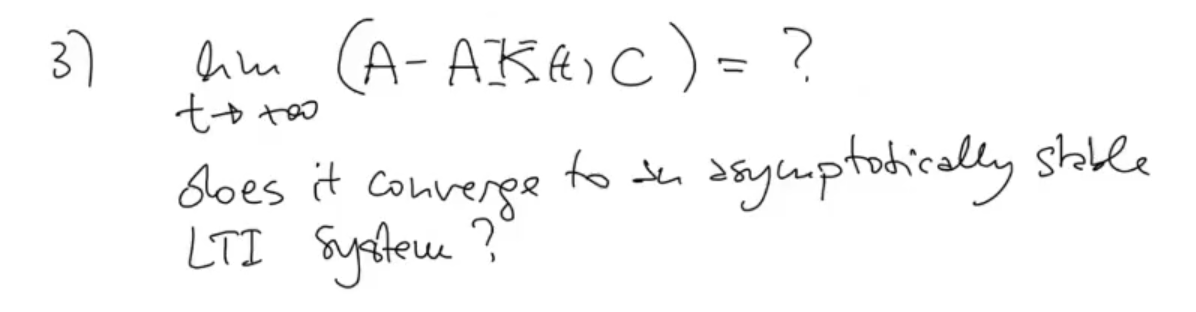 3) lim (A - A K(t) C) = ?
t→+∞
does it converge to an asymptotically stable
LTI system?